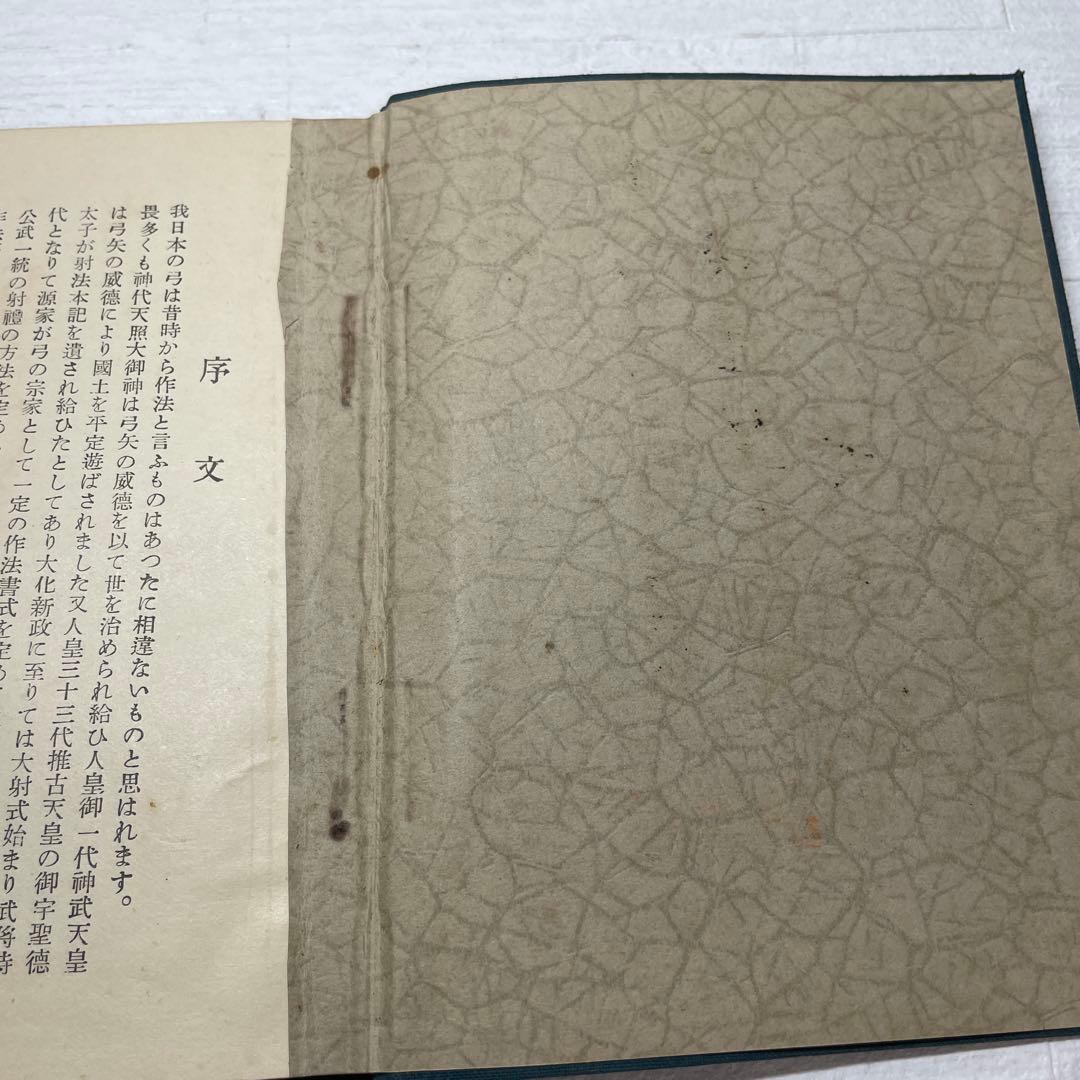 序文
我日本の弓は昔時から作法と言ふものはあつたに相違ないものと思はれます。
畏多くも神代天照大御神は弓矢の威德を以て世を治められ給ひ人皇御一代神武天皇
は弓矢の威德により國土を平定遊ばされました又人皇三十三代推古天皇の御宇聖德
太子が射法本記を遺され給ひたとしてあり大化新政に至りては大射式始まり武將時
代となりて源家が弓の宗家として一定の作法書式を定め
公武一統の射禮の方法を定め